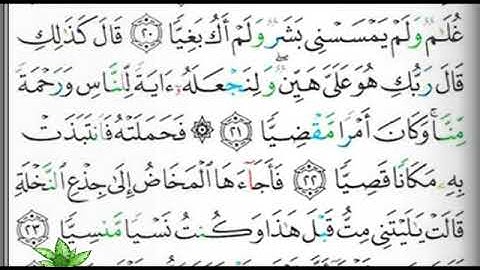 غُلَٰمٌ وَلَمْ يَمْسَسْنِى بَشَرٌ وَلَمْ أَكُ بَغِيًّا ٢٠ قَالَ كَذَٰلِكِ
قَالَ رَبُّكِ هُوَ عَلَىَّ هَيِّنٌ ۖ وَلِنَجْعَلَهُۥٓ ءَايَةً لِّلنَّاسِ وَرَحْمَةً
مِّنَّا ۚ وَكَانَ أَمْرًا مَّقْضِيًّا ٢١ ۞ فَحَمَلَتْهُ فَٱنتَبَذَتْ
بِهِۦ مَكَانًا قَصِيًّا ٢٢ فَأَجَآءَهَا ٱلْمَخَاضُ إِلَىٰ جِذْعِ ٱلنَّخْلَةِ
قَالَتْ يَٰلَيْتَنِى مِتُّ قَبْلَ هَٰذَا وَكُنتُ نَسْيًا مَّنسِيًّا ٢٣